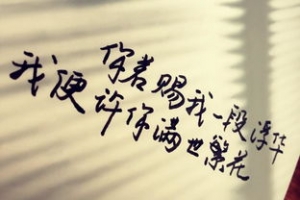 你若赐我一段浮华
我便许你满世繁花